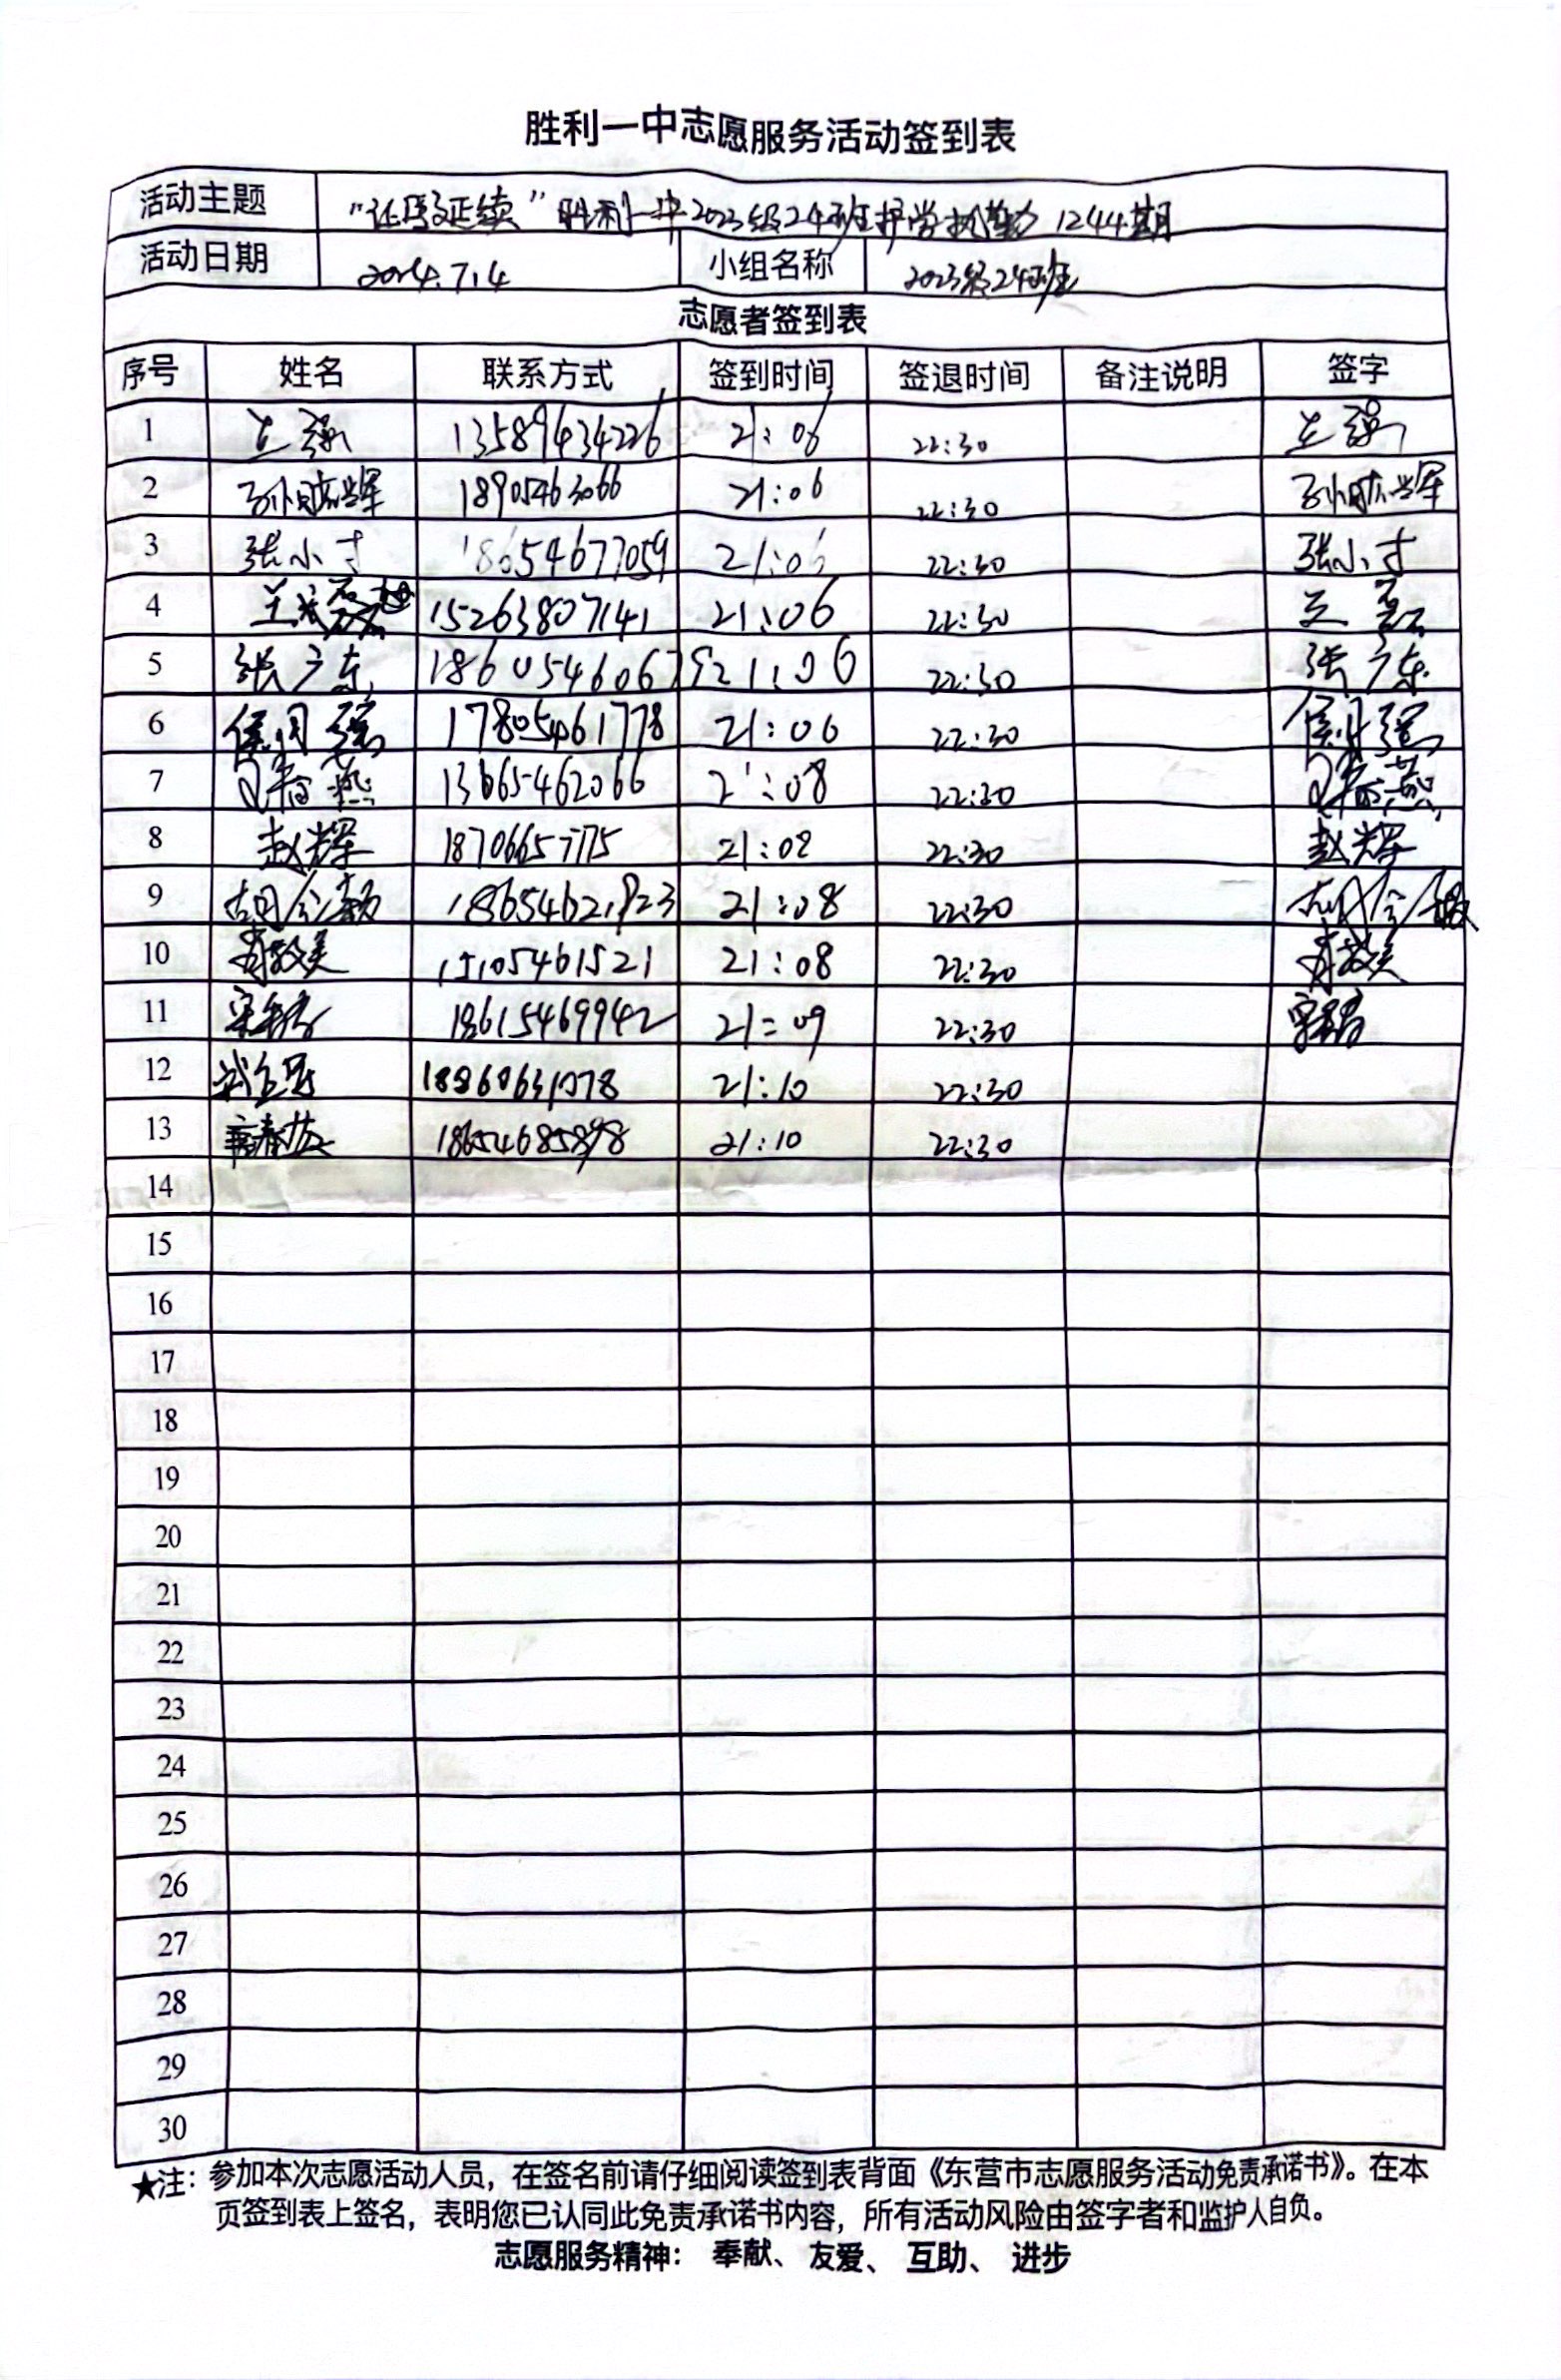 胜利一中志愿服务活动签到表
活动主题 "让爱延续"胜利一中2023级24班护学执勤 1244期
活动日期 2024.7.4 小组名称 2023级24班
志愿者签到表
序号 姓名 联系方式 签到时间 签退时间 备注说明 签字
1 13589434226 21:06 22:30
2 18905463066 21:06 22:30
3 张小寸 18654677059 21:06 22:30 张小寸
4 15263807141 21:06 22:30 王磊
5 张广东 18605460679 21:06 22:30 张广东
6 17805461778 21:06 22:30
7 13665462066 21:08 22:30
8 赵辉 18706657775 21:08 22:30 赵辉
9 18654621823 21:08 22:30
10 15105461521 21:08 22:30
11 18615469942 21:09 22:30
12 21:10 22:30
13 18654685898 21:10 22:30
14
15
16
17
18
19
20
21
22
23
24
25
26
27
28
29
30
★注：参加本次志愿活动人员，在签名前请仔细阅读签到表背面《东营市志愿服务活动免责承诺书》。在本
页签到表上签名，表明您已认同此免责承诺书内容，所有活动风险由签字者和监护人自负。
志愿服务精神： 奉献、 友爱、 互助、 进步